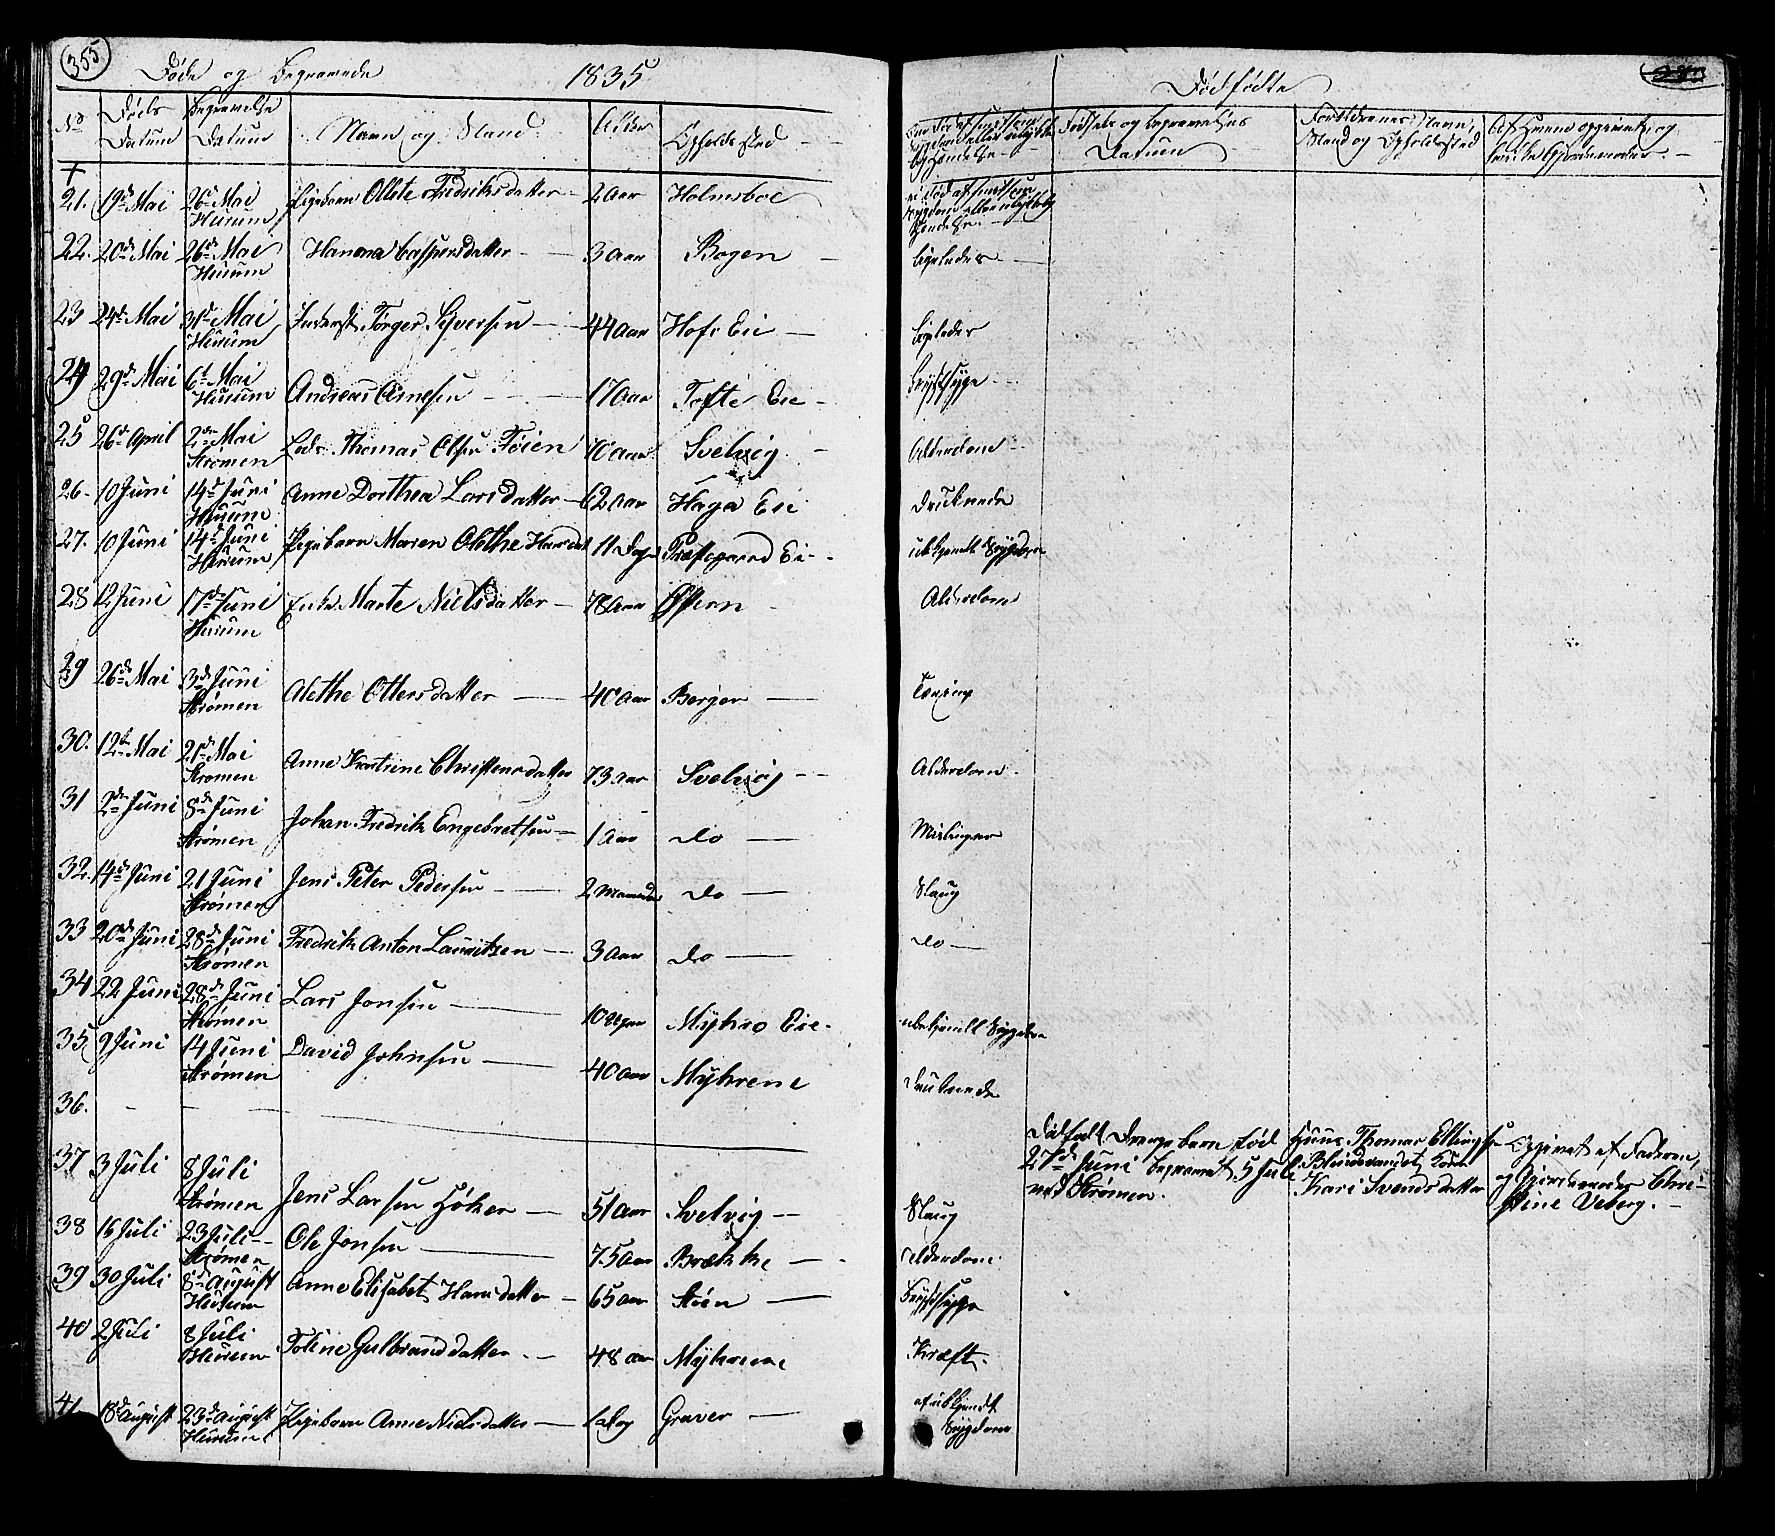 355
Døde og Begravede 1835
No Døds Datum Begravelse Datum Navn og Stand Alder Opholdssted
21. 19de Mai 26de Mai Pigebarn Olete Fredriksdatter 2 Aar Holmsboe
Hurum
22. 20de Mai 26de Mai Hanna Caspersdatter 3 Aar Bogen
Hurum
23 24de Mai 31de Mai Inderst Torger Syversen 44 Aar Hofs Eie
Hurum
24 29de Mai 6t Mai Andreas Arnesen 17 Aar Tofte Eie
Hurum
25 26de April 2den Mai Lods Thomas Olsen Föien 70 Aar Svelvig
Strömen
26 10 Juni 14de Juni Anne Dorthea Larsdatter 62 Aar Haga Eie
Hurum
27. 10 Juni 14de Juni Pigebarn Maren Olethe Hansdat 11 Dage Præstegaard Ei
Hurum
28 12 Juni 17de Juni Enke Marte Nielsdatter 78 Aar
Hurum
29 26de Mai 3de Juni Alethe Ottersdatter 40 Aar Berger
Strömen
30. 12te Mai 21de Mai Anne Katrine Christensdatter 73 Aar Svelvig
Strömen
31 2den Juni 8de Juni Johan Fredrik Engebretsen 1 Aar do
Strömen
32. 14de Juni 21 Juni Jens Peter Pedersen 2 Maaneder do
Strömen
33 20de Juni 28de Juni Fredrik Anton Lauritzen 3 Aar do
Strömen
34 22 Juni 28de Juni Lars Jonsen 10 Uger Myhre Eie
Strömen
35 9 Juni 14 Juni David Johnsen 40 Aar Myhrene
Strömen
36.
37 3 Juli 8 Juli Jens Larsen Höker 51 Aar Svelvig
Strömen
38 16 Juli 23 Juli Ole Jonsen 75 Aar Brække
Strömen
39 30 Juli 8de August Anne Elisabet Hansdatter 65 Aar Stöen
Hurum
40 2 Juli 8 Juli Toline Gulbrandsdatter 48 Aar Myhrene
Hurum
41 18de August 23de August Pigebarn Anne Nielsdatter 1 Dag Graver
Hurum
Dødfødte
Fødsels og Begravelses Datum
Forældrenes Navn, Stand og Opholdssted
Af hvem opgivet og
ligeledes
ligeledes
Brystsyge
Alderdom
Druknede
ubekjendt Sygdom
Alderdom
Tæring
Alderdom
Meslinger
Slaug
do
ubekjendt Sygdom
Druknede
Dødfødt Drengebarn fød
27de Juni begravet 5 Juli
ved Strömen.
Huus. Thomas Ellingsen
Blindevandet, Kone
Kari Svendsdatter
Opgivet af Faderen,
og Gjordemoder Chri-
stine Veberg.
Slaug
Alderdom
Brystsyge
Kræft.
af ubekjendt
Sygdom